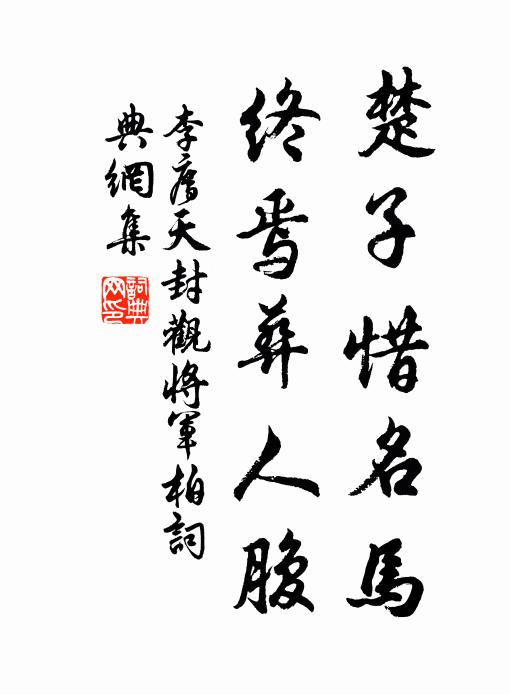 楚子惜名馬
終焉葬人腹
李廌天封觀將軍柏詞
典網集
詞典
网印